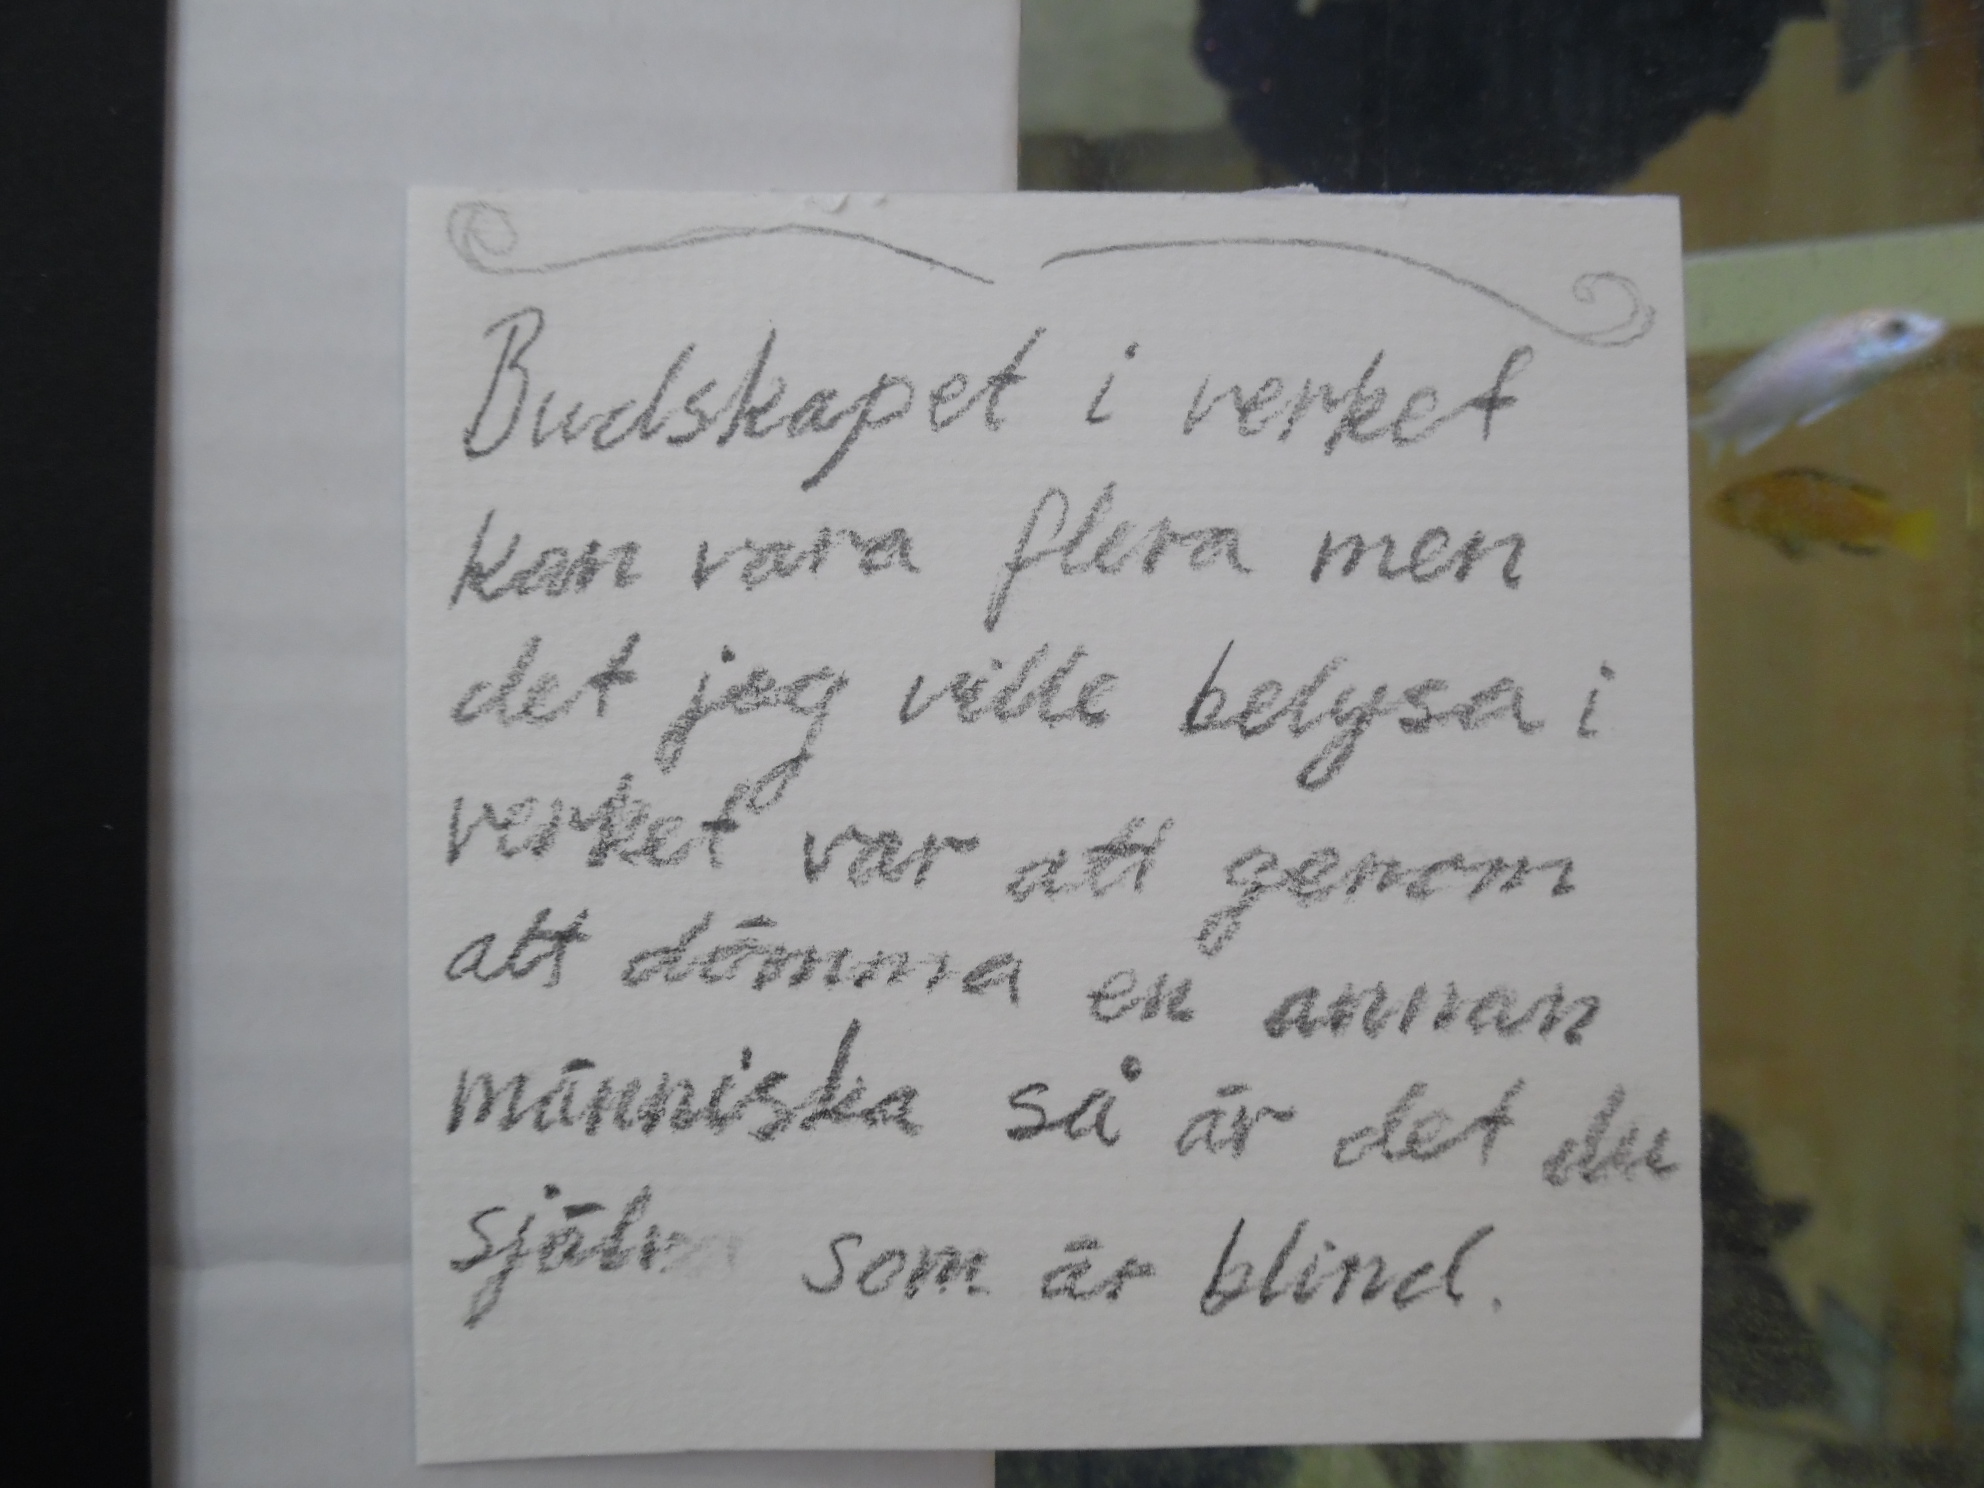 Budskapet i verket
kan vara flera men
det jag ville belysa i
verket var att genom
att dömma en annan
människa så är det du
själv som är blind.